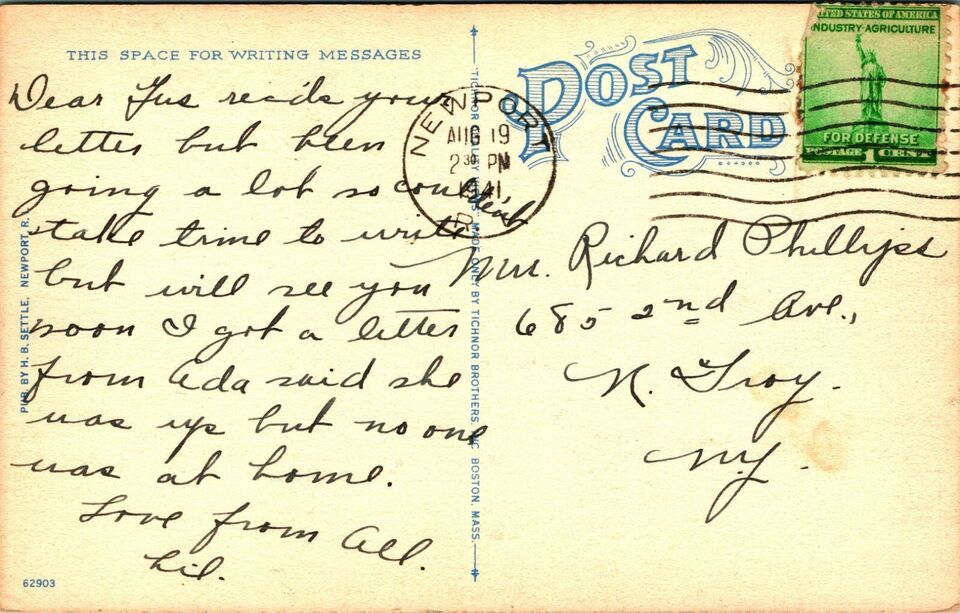 THIS SPACE FOR WRITING MESSAGES
Dear Gus rec'd your
letter but been
going a lot so could
take time to write
but will see you
soon I got a letter
from Ada said she
was up but no one
was at home.
Love from All.
Lil.
62903
PUB. BY H. B. SETTLE, NEWPORT, R.
TICHNOR QUALITY VIEWS MADE ONLY BY TICHNOR BROTHERS, INC. BOSTON, MASS.
POST
CARD
NEWPORT
AUG 19
2 30 PM
1941
UNITED STATES OF AMERICA
INDUSTRY·AGRICULTURE
FOR DEFENSE
POSTAGE 1 CENT
Mrs. Richard Phillips
685 2nd Ave.,
N. Troy.
N.Y.